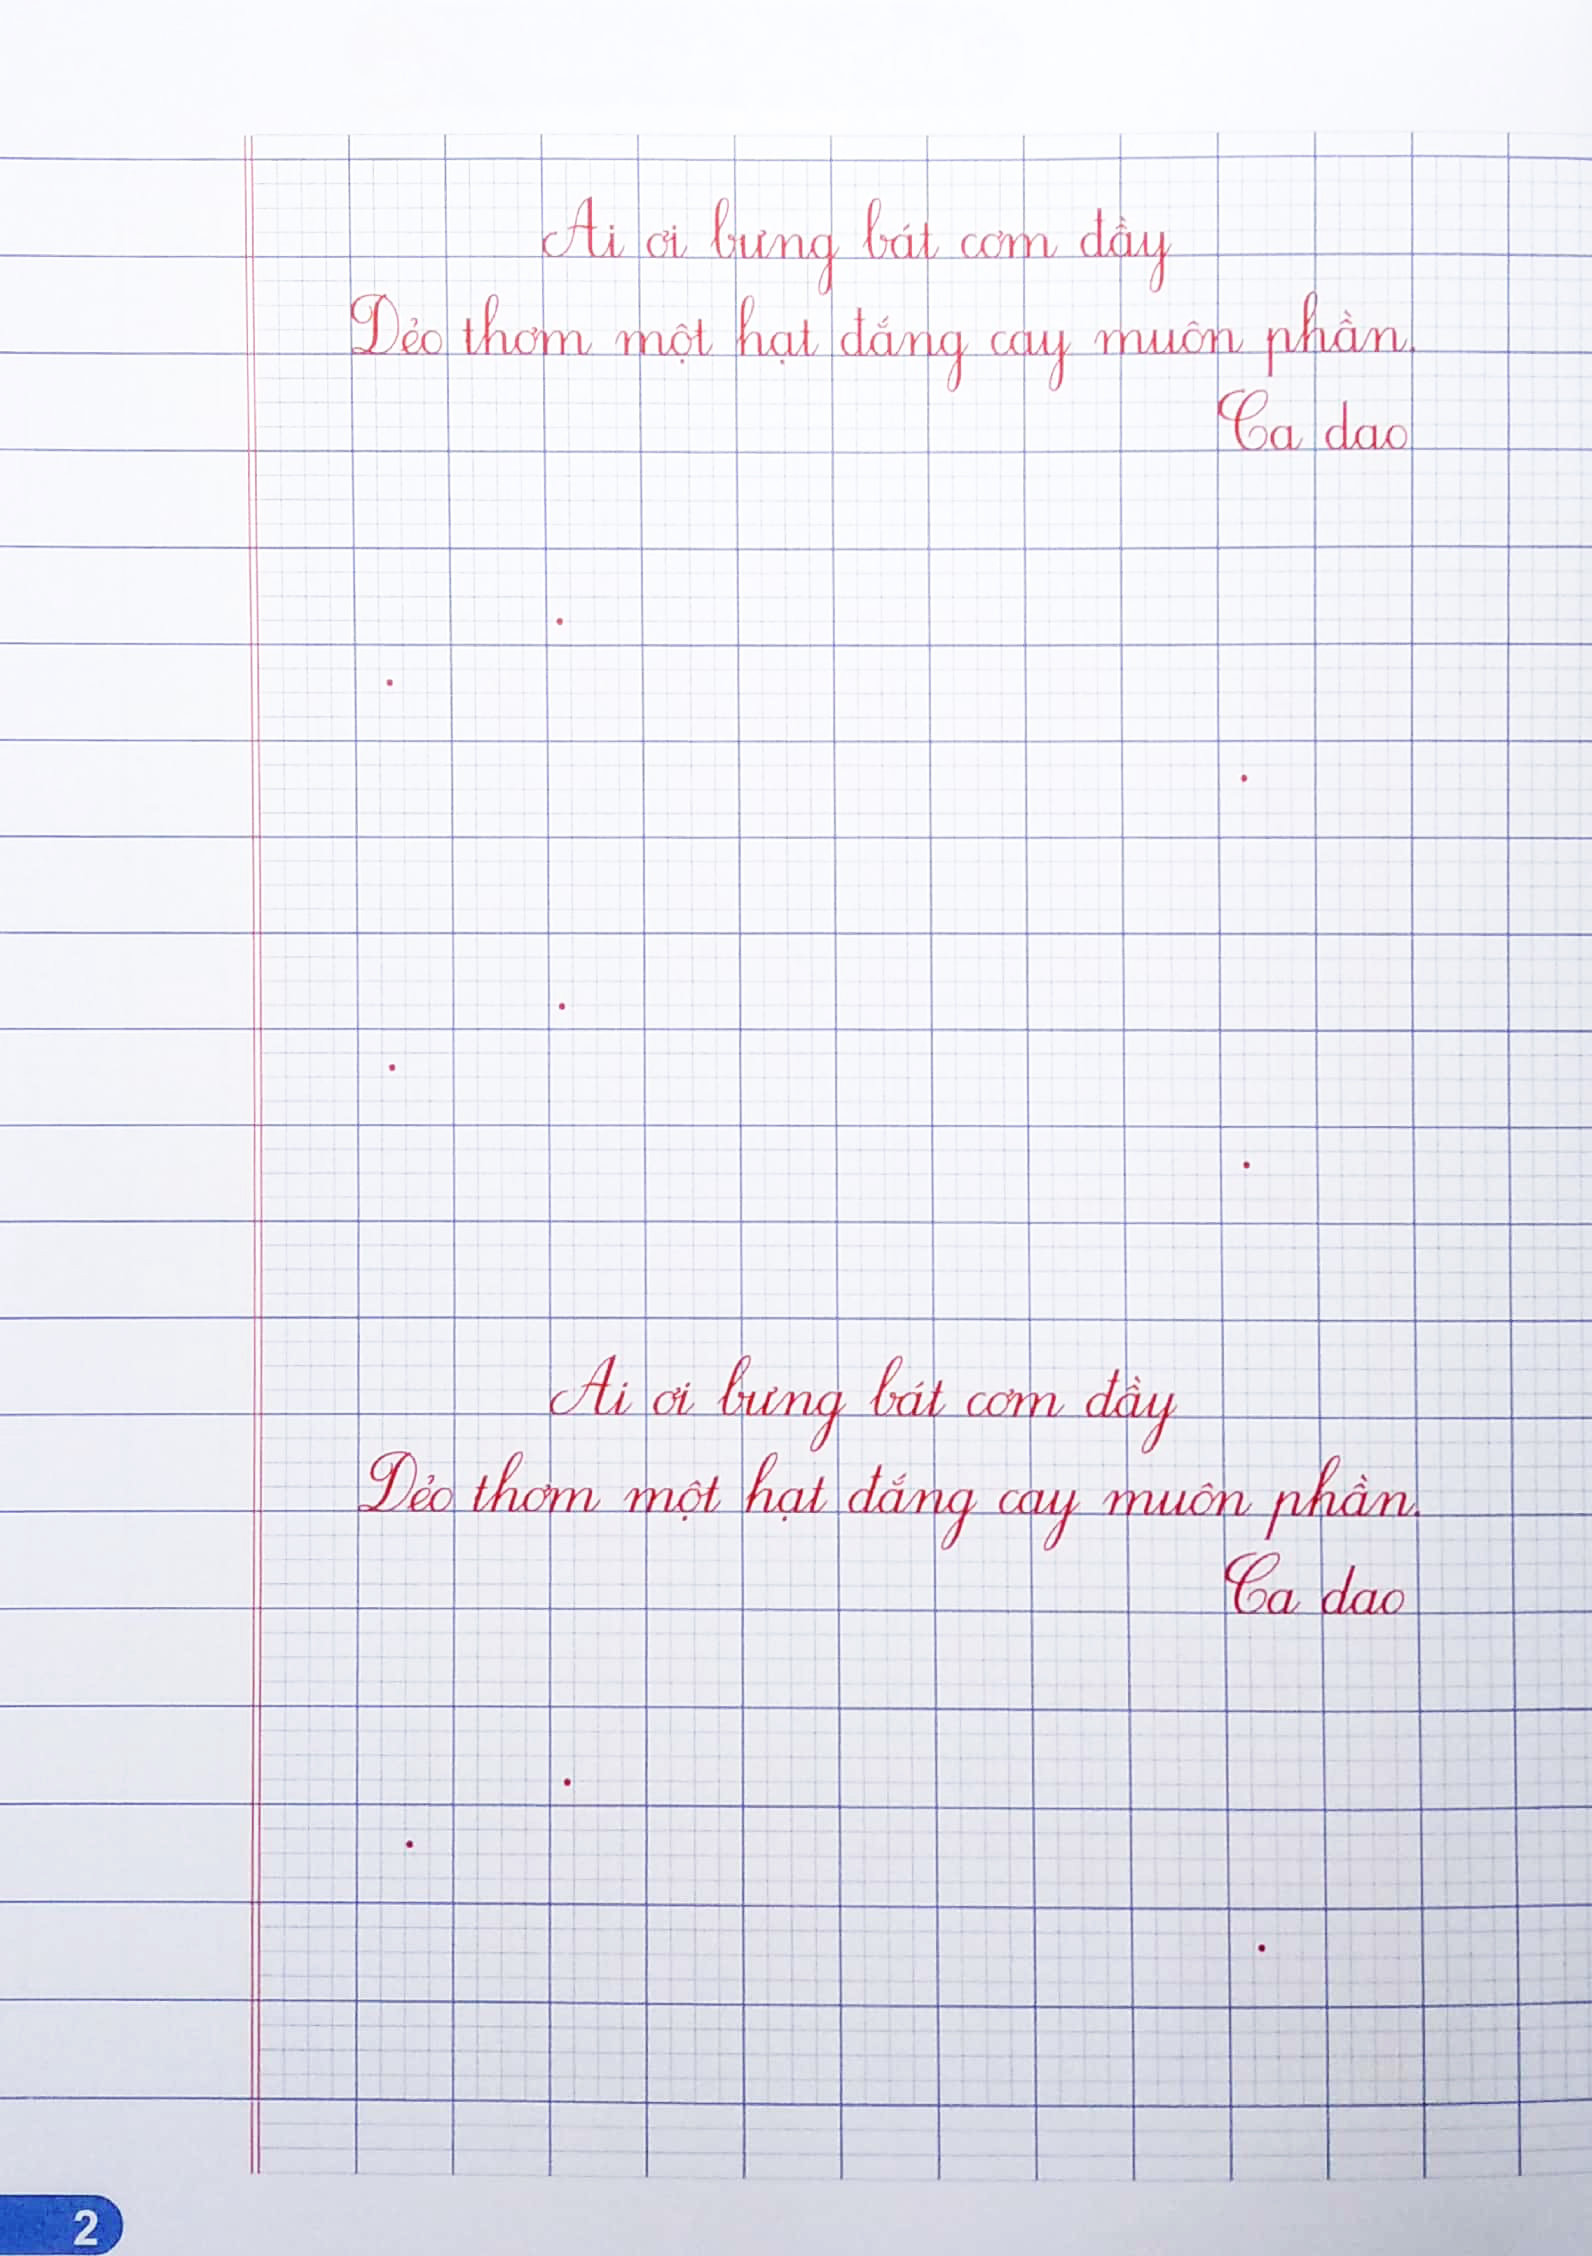 Ai ơi bưng bát cơm đầy
Dẻo thơm một hạt đắng cay muôn phần.
Ca dao
Ai ơi bưng bát cơm đầy
Dẻo thơm một hạt đắng cay muôn phần.
Ca dao
2